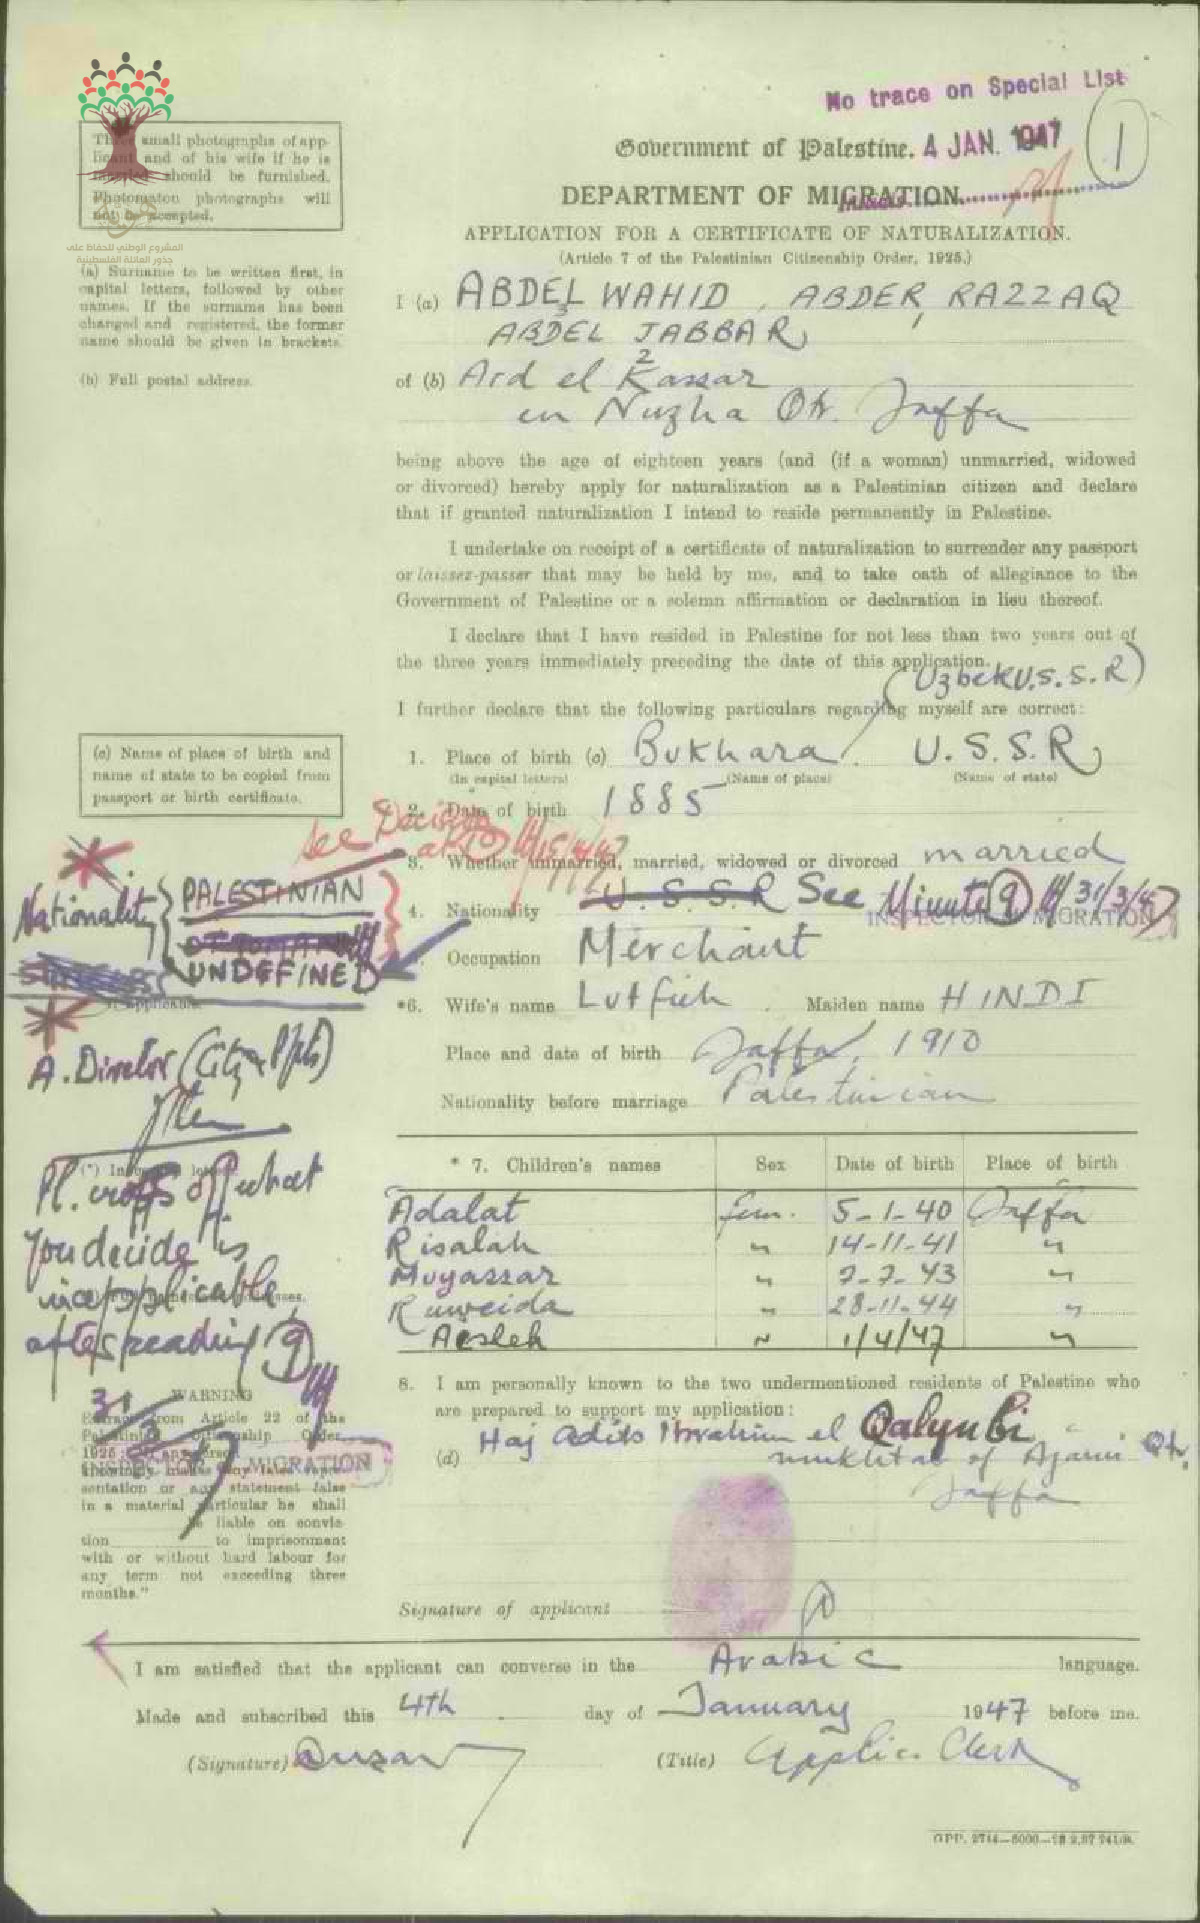 No trace on Special List
4 JAN. 1947
1
Government of Palestine.
DEPARTMENT OF MIGRATION.
APPLICATION FOR A CERTIFICATE OF NATURALIZATION.
(Article 7 of the Palestinian Citizenship Order, 1925.)
Three small photographs of app-
licant and of his wife if he is
married should be furnished.
Photomaton photographs will
not be accepted.
المشروع الوطني للحفاظ على
جذور العائلة الفلسطينية
(a) Surname to be written first, in
capital letters, followed by other
names. If the surname has been
changed and registered, the former
name should be given in brackets.
(b) Full postal address.
I (a) ABDEL WAHID, ABDER RAZZAQ
ABDEL JABBAR
of (b) Ard el Kassar
in Nuzha Qtr. Jaffa
being above the age of eighteen years (and (if a woman) unmarried, widowed
or divorced) hereby apply for naturalization as a Palestinian citizen and declare
that if granted naturalization I intend to reside permanently in Palestine.
I undertake on receipt of a certificate of naturalization to surrender any passport
or laissez-passer that may be held by me, and to take oath of allegiance to the
Government of Palestine or a solemn affirmation or declaration in lieu thereof.
I declare that I have resided in Palestine for not less than two years out of
the three years immediately preceding the date of this application.
(Uzbek U.S.S.R)
I further declare that the following particulars regarding myself are correct:
(c) Name of place of birth and
name of state to be copied from
passport or birth certificate.
1. Place of birth (c) Bukhara U.S.S.R
(In capital letters) (Name of place) (Name of state)
2. Date of birth 1885
See Decision
at
3. Whether unmarried, married, widowed or divorced married
4. Nationality U.S.S.R See Minute 9 31/3/47
INSPECTOR OF MIGRATION
Nationality
PALESTINIAN
OTTOMAN
UNDEFINED
Occupation Merchant
if applicable
*6. Wife's name Lutfieh Maiden name HINDI
Place and date of birth Jaffa, 1910
Nationality before marriage Palestinian
A. Director (Citz & Ppts)
Pl. cross off what
you decide is
inapplicable
after reading 9
* 7. Children's names Sex Date of birth Place of birth
Adalat fem. 5-1-40 Jaffa
Risalah " 14-11-41 "
Muyassar " 7-7-43 "
Ruweida " 28-11-44 "
Aesleh " 1/4/47 "
8. I am personally known to the two undermentioned residents of Palestine who
are prepared to support my application:
(d) Haj Adib Ibrahim el Qalyubi
mukhtar of Ajami Qtr.
Jaffa
31
WARNING
Extract from Article 22 of the
Palestinian Citizenship Order,
1925:
INSPECTOR OF MIGRATION
knowingly makes any false repre-
sentation or any statement false
in a material particular he shall
be liable on convic-
tion to imprisonment
with or without hard labour for
any term not exceeding three
months."
Signature of applicant
I am satisfied that the applicant can converse in the Arabic language.
Made and subscribed this 4th day of January 1947 before me.
(Signature) (Title) Applic. Clerk
GPP. 2744—5000—